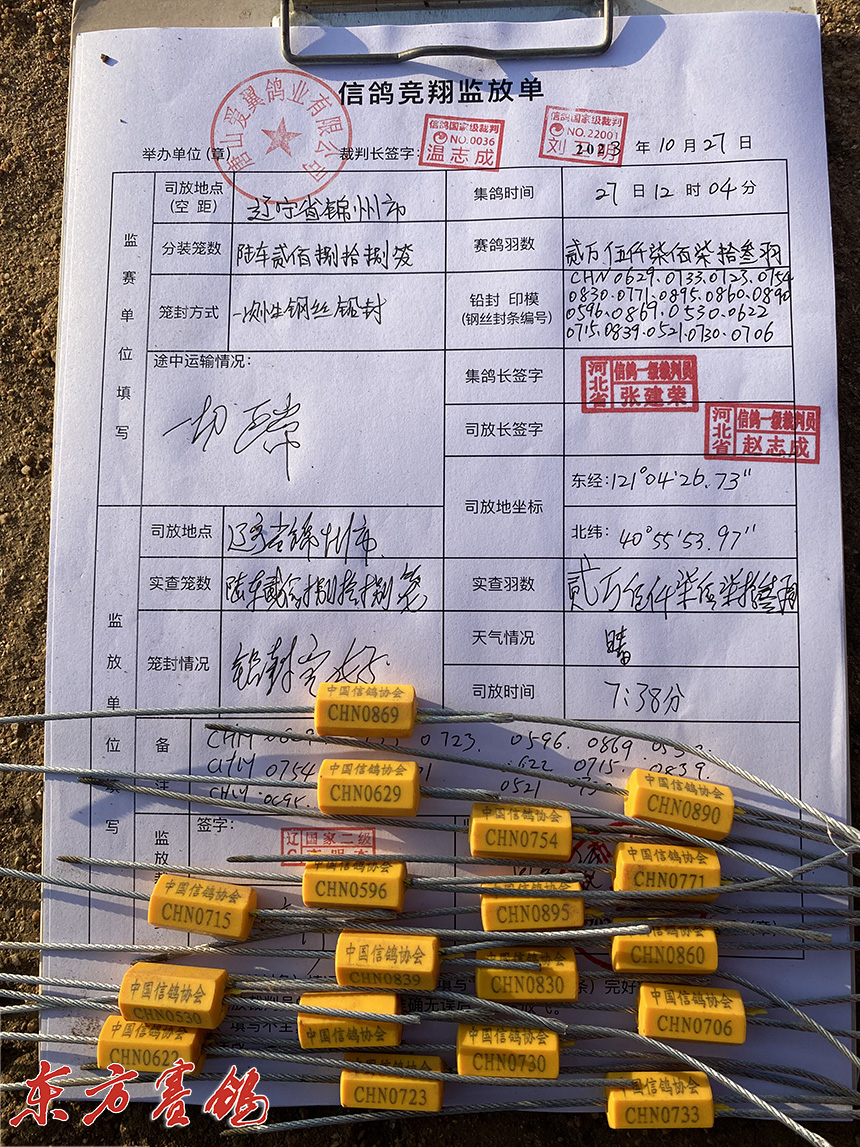 信鸽竞翔监放单
唐山爱翼鸽业有限公司
举办单位(章)
裁判长签字:
信鸽国家级裁判
NO.0036
温志成
信鸽国家级裁判
NO.22001
2023 年 10 月 27 日
监赛单位填写
司放地点
(空 距)
辽宁省锦州市
集鸽时间
27 日 12 时 04 分
分装笼数
陆车贰佰捌拾捌笼
赛鸽羽数
贰万伍仟柒佰柒拾叁羽
笼封方式
一次性钢丝铅封
铅封 印模
(钢丝封条编号)
CHN0629.0733.0723.0754
0830.0771.0895.0860.0890
0596.0869.0530.0622
0715.0839.0521.0730.0706
途中运输情况:
一切正常
集鸽长签字
河北省
信鸽一级裁判员
张建荣
司放长签字
河北省
信鸽一级裁判员
赵志成
司放地坐标
东经:121°04'26.73"
北纬: 40°55'53.97"
司放地点
辽宁省锦州市
实查笼数
陆车贰佰捌拾捌笼
实查羽数
贰万伍仟柒佰柒拾叁羽
笼封情况
铅封完好
天气情况
晴
司放时间
7:38分
备
0723. 0596. 0869 0530.
0754
0715. 0839.
0521
签字:
国家二级
中国信鸽协会
CHN0869
中国信鸽协会
CHN0629
中国信鸽协会
CHN0890
中国信鸽协会
CHN0754
中国信鸽协会
CHN0771
中国信鸽协会
CHN0596
中国信鸽协会
CHN0895
中国信鸽协会
CHN0715
中国信鸽协会
CHN0860
中国信鸽协会
CHN0839
中国信鸽协会
CHN0830
中国信鸽协会
CHN0530
中国信鸽协会
CHN0706
中国信鸽协会
中国信鸽协会
CHN0622
中国信鸽协会
CHN0730
中国信鸽协会
CHN0723
中国信鸽协会
CHN0733
东方赛鸽